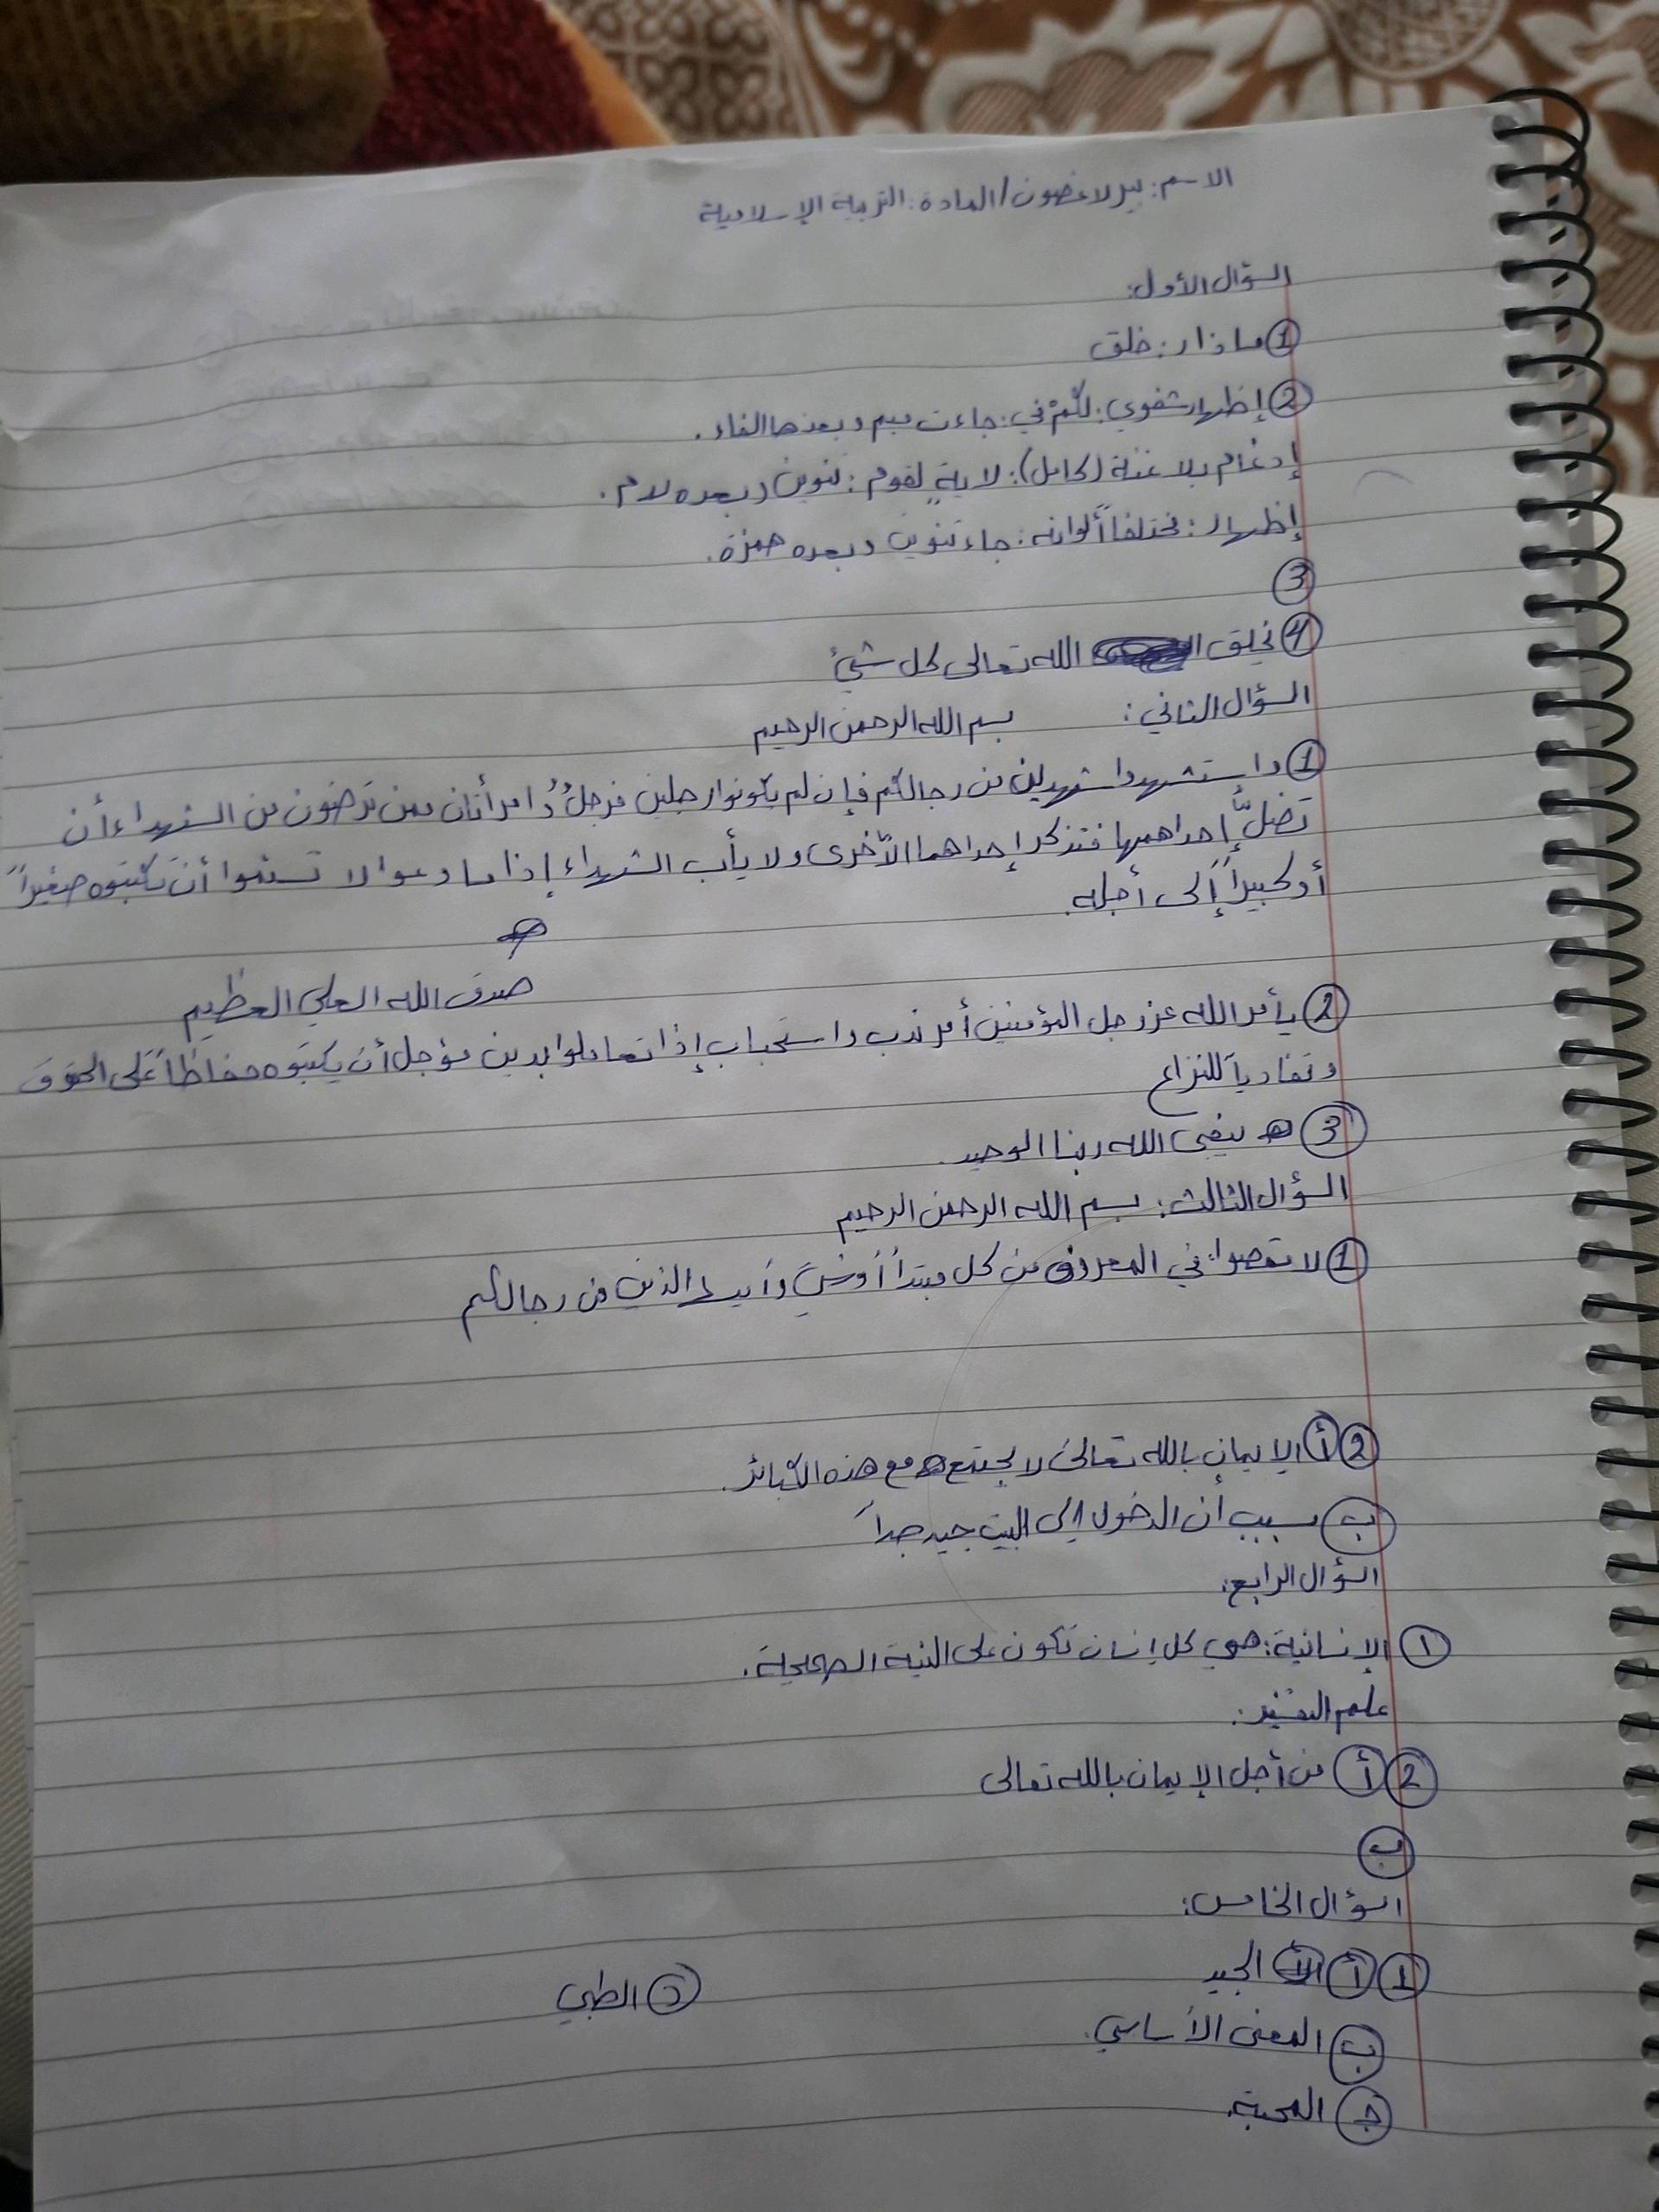 الاسم: بيرلا غصون / المادة: التربية الإسلامية
السؤال الأول:
① ماذا ر: خلق
② إظهار شفوي: لكمْ في: جاءت ميم وبعدها الفاء.
إدغام بلا غنة (كامل): لايةٍ لقوم: تنوين وبعده لام.
إظهار: مختلفاً ألوانه: جاء تنوين وبعده همزة.
③
④ الله تعالى كل شيئ
السؤال الثاني: بسم الله الرحمن الرحيم
① واستشهدوا شهدين من رجالكم فإن لم يكونوا رجلين فرجلٌ وُامرأتان ممن ترضون من الشهداء أن
تضلَّ إحداهمها فتذكر إحداهما الأخرى ولا يأب الشهداء إذا ما دعوا لا تسئموا أن تكتبوه صغيراً
أو كبيراً إلى أجله.
صدق الله العلي العظيم
② يأمر الله عز وجل المؤمنين أمر ندب واستحباب إذا تعاملوا بدين مؤجل أن يكتبوه حفاظاً على الحقوق
وتفادياً للنزاع
③ الله ربنا الوحيد.
السؤال الثالث: بسم الله الرحمن الرحيم
① لا تعصوا في المعروف من كل الذين من رجالكم
② أ الإيمان بالله تعالى لا يجتمع مع هذه الكبائر.
ب بسبب أن الدخول إلى البيت جيد جداً
السؤال الرابع:
① الإنسانية: هي كل إنسان تكون على النية الصحيحة.
علم التفسير:
② أ من أجل الإيمان بالله تعالى
ب
السؤال الخامس:
① أ الجيد
د الطبي
ب المعنى الأساسي.
ج المحبة.